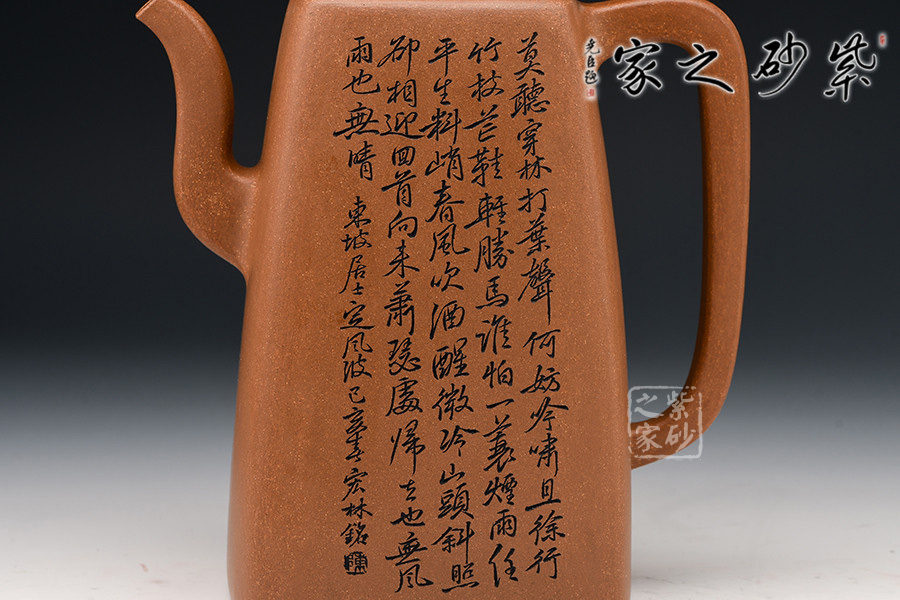 莫聽穿林打葉聲何妨吟嘯且徐行
竹杖芒鞋輕勝馬誰怕一蓑煙雨任
平生料峭春風吹酒醒微冷山頭斜照
卻相迎回首向來蕭瑟處歸去也無風
雨也無晴 東坡居士定風波己亥春宏林銘
紫砂之家
紫砂之家